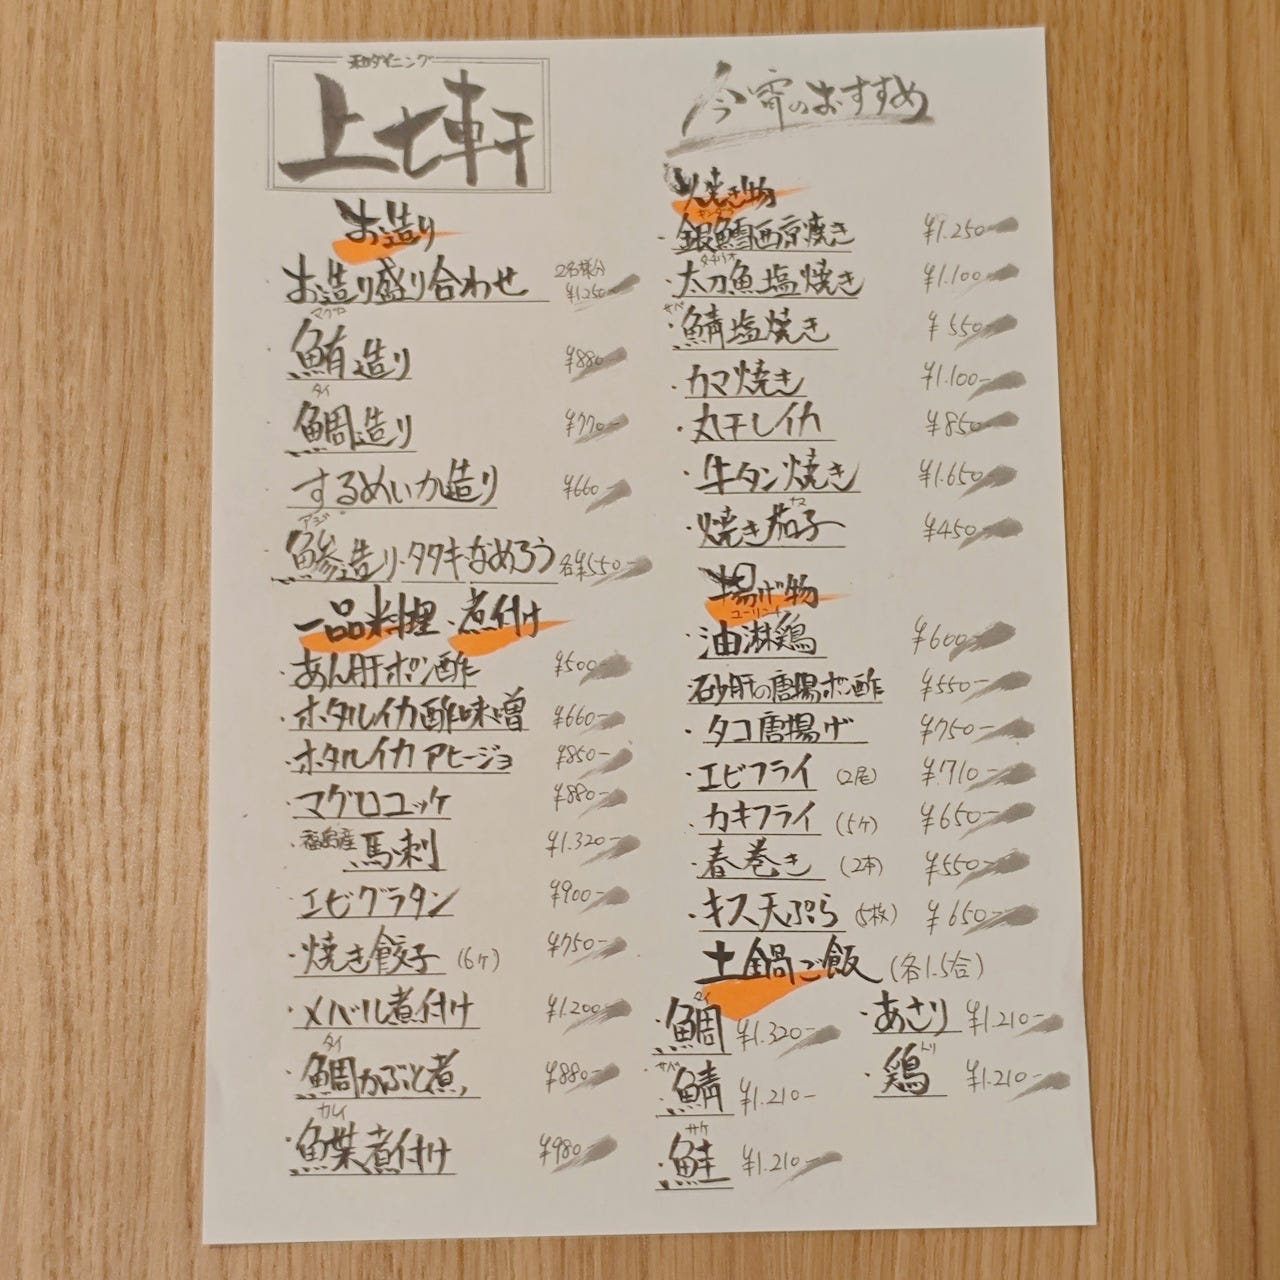 和ダイニング
上七軒
お造り
お造り盛り合わせ 2名様分 ¥1.250-
鮪造り マグロ ¥880-
鯛造り タイ ¥770-
するめいか造り ¥660-
鯵造り・タタキ・なめろう アジ 各¥550-
一品料理・煮付け
・あん肝ポン酢 ¥500-
・ホタルイカ酢味噌 ¥660-
・ホタルイカアヒージョ ¥850-
・マグロユッケ ¥880-
・福島産 馬刺 ¥1.320-
・エビグラタン ¥900-
・焼き餃子 (6ヶ) ¥750-
・メバル煮付け ¥1.200-
・鯛かぶと煮 タイ ¥880-
・鰈煮付け カレイ ¥980-
今宵のおすすめ
焼き物
・銀鱈西京焼き ギンダラ ¥1.250-
・太刀魚塩焼き タチウオ ¥1.100-
・鯖塩焼き サバ ¥550-
・カマ焼き ¥1.100-
・丸干しイカ ¥850-
・牛タン焼き ¥1.650-
・焼き茄子 ナス ¥450-
揚げ物
・油淋鶏 ユーリンチー ¥600-
砂肝の唐揚ポン酢 ¥550-
・タコ唐揚げ ¥750-
・エビフライ (2尾) ¥710-
・カキフライ (5ヶ) ¥650-
・春巻き (2本) ¥550-
・キス天ぷら (5枚) ¥650-
土鍋ご飯 (各1.5合)
・鯛 タイ ¥1.320-
・鯖 サバ ¥1.210-
・鮭 サケ ¥1.210-
・あさり ¥1.210-
・鶏 トリ ¥1.210-